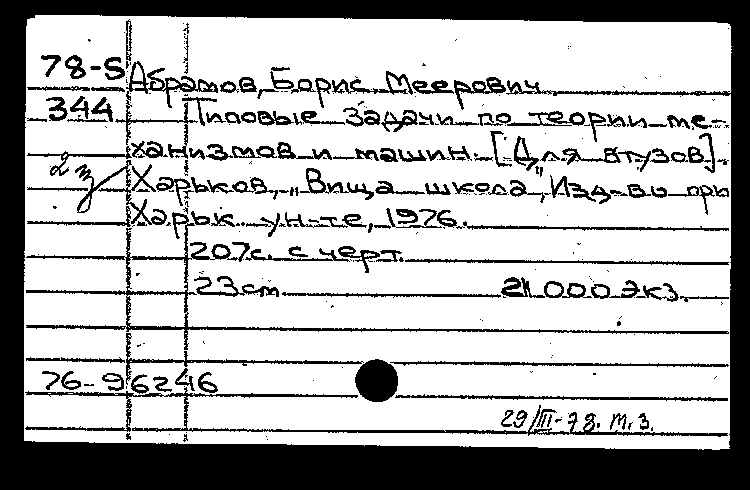 78-5 Абрамов, Борис Меерович
344 Типовые задачи по теории ме-
ханизмов и машин. [Для втузов].
2 з Харьков, "Вища школа", Изд-во при
Харьк. ун-те, 1976.
207с. с черт.
23 см. 21 000 экз.
76-96246
29/III-78. М.З.